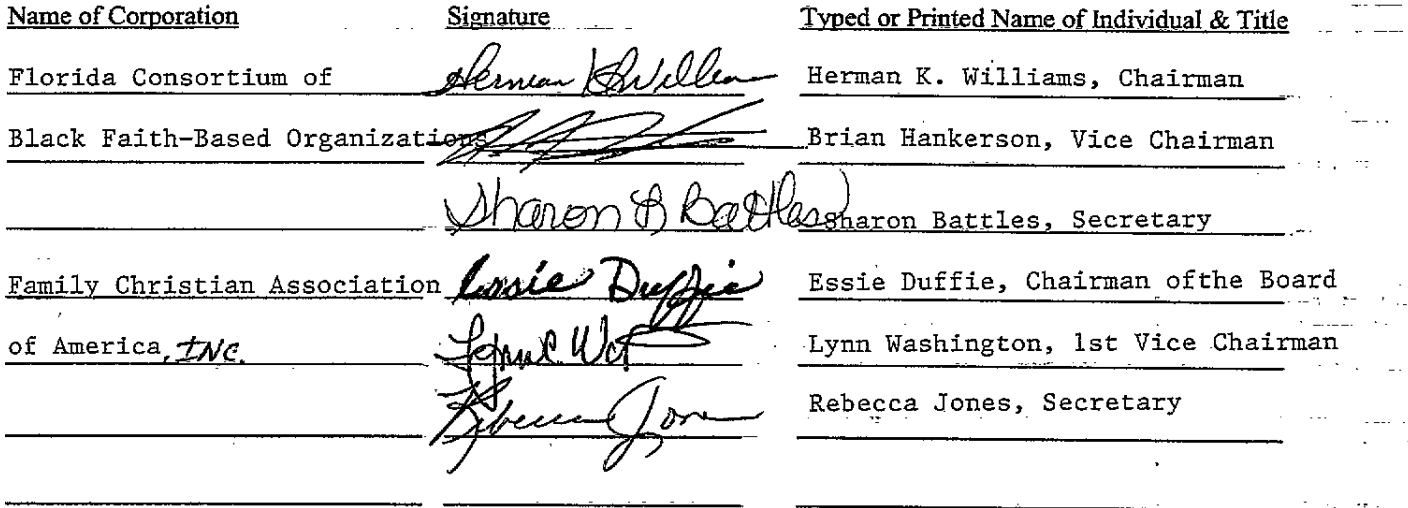 Name of Corporation Signature Typed or Printed Name of Individual & Title
Florida Consortium of Herman K Williams Herman K. Williams, Chairman
Black Faith-Based Organizations Brian Hankerson, Vice Chairman
Sharon B Battles Sharon Battles, Secretary
Family Christian Association Essie Duffie Essie Duffie, Chairman ofthe Board
of America, INC. Lynn Washington, 1st Vice Chairman
Rebecca Jones Rebecca Jones, Secretary